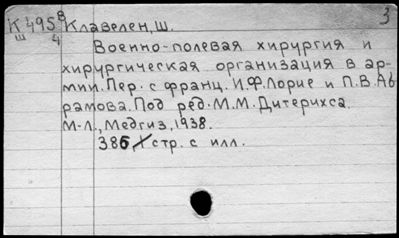 К 495 В Клавелен, Ш. 3
Ш 4
Военно-полевая хирургия и
хирургическая организация в ар-
мии. Пер. с франц. И.Ф.Лорие и П.В.Ав
рамова. Под ред. М.М.Дитерихса.
М-Л., Медгиз, 1938.
386, стр. с илл.